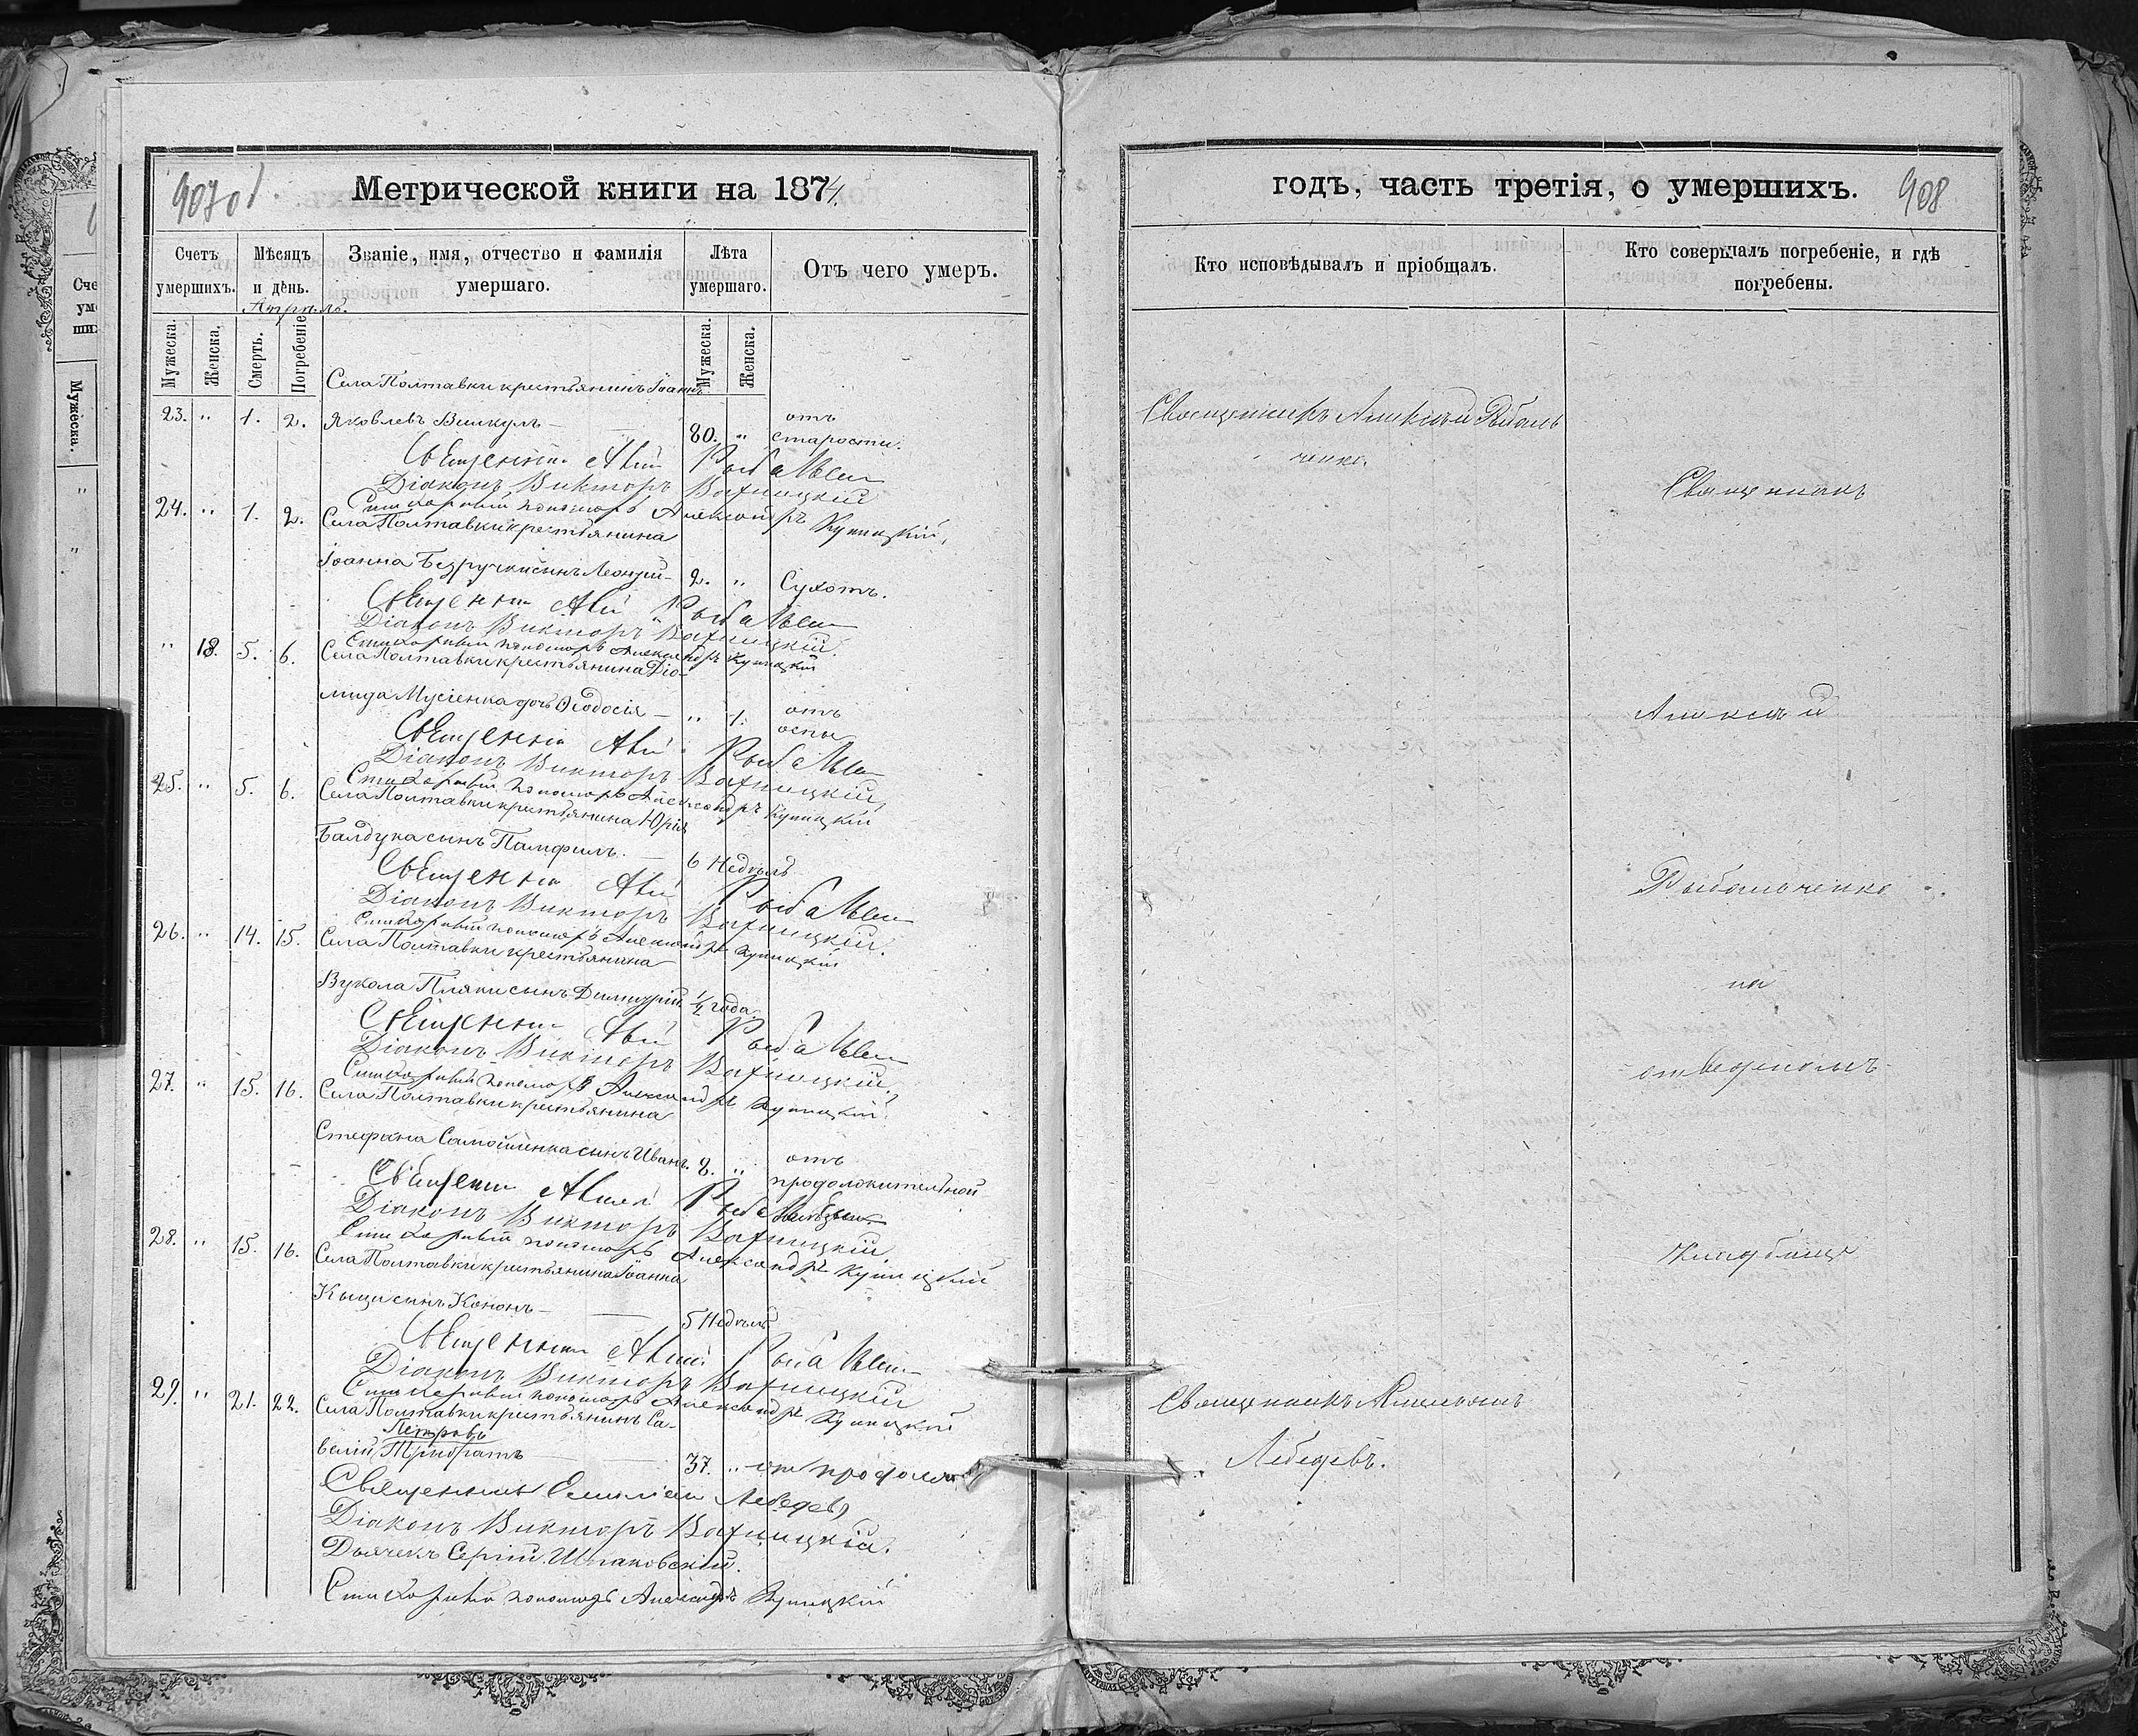 907об
Метрической книги на 1874.
Счетъ умершихъ.
Мѣсяцъ и день.
Званіе, имя, отчество и фамилія умершаго.
Лѣта умершаго.
Отъ чего умеръ.
Апрѣль.
Мужеска.
Женска.
Смерть.
Погребеніе
Мужеска.
Женска.
Села Полтавки крестьянинъ Іоаннъ
23. „ 1. 2. Яковлевъ Вишкулъ — 80. „ отъ старости.
Священник Алкй Рыбальчен
Діаконъ Викторъ Вахницкій
Стихарный пономарь Александръ Купицкій,
24. „ 1. 2. Села Полтавки крестьянина
Іоанна Безручки сынъ Леонтій — 2. „ Сухотъ.
Священник Алкй Рыбальчен
Діаконъ Викторъ Вахницкій.
Стихарный пономарь Александръ Купицкій
„ 18. 5. 6. Села Полтавки крестьянина Діо-
мида Мусіенка дочь Ѳеодосія — „ 1. отъ оспы
Священник Алкй Рыбальчен
Діаконъ Викторъ Вахницкій,
Стихарный пономарь Александръ Купицкій
25. „ 5. 6. Села Полтавки крестьянина Юрія
Балдука сынъ Памфилъ. — 6 Недѣль
Священник Алкй Рыбальчен
Діаконъ Викторъ Вахницкій.
Стихарный пономарь Александръ Купицкій
26. „ 14. 15. Села Полтавки крестьянина
Вукола Пляки сынъ Димитрій ½ года.
Священник Алкй Рыбальчен
Діаконъ Викторъ Вахницкій.
Стихарный пономарь Александръ Купицкій.
27. „ 15. 16. Села Полтавки крестьянина
Стефана Самойленка сынъ Иванъ. 2. „ отъ
продолжительной
Священник Алкй Рыбальчен
Діаконъ Викторъ Вахницкій
Стихарный пономарь Александръ Купицкій
28. „ 15. 16. Села Полтавки крестьянина Іоанна
Кыци сынъ Кононъ — 5 Недѣль
Священник Алкй Рыбальчен
Діаконъ Викторъ Вахницкій
Стихарный пономарь Александръ Купицкій
29. „ 21. 22. Села Полтавки крестьянинъ Са-
Петровъ
велій Трибратъ — 37. „ от продолж
Священникъ Емиліан Лебедевъ
Діаконъ Викторъ Вахницкій.
Дьячекъ Сергій Шпаковскій.
Стихарный пономарь Александръ Купицкій
годъ, часть третія, о умершихъ.
908
Кто исповѣдывалъ и пріобщалъ.
Кто совершалъ погребеніе, и гдѣ погребены.
Священникъ Алексѣй Рыбаль
ченко.
Священникъ
Алексѣй
Рыбальченко
на
отведеномъ
Кладбищѣ
Священникъ Емиліанъ
Лебедевъ.